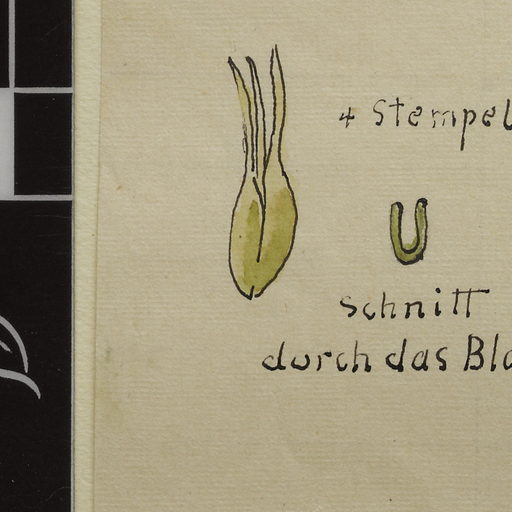 4 Stempel
Schnitt
durch das